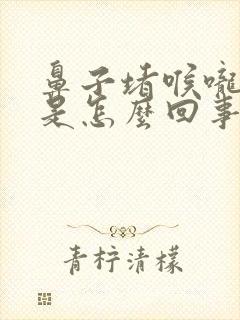 鼻子堵喉嚨
是怎麼回事
青柠清檬